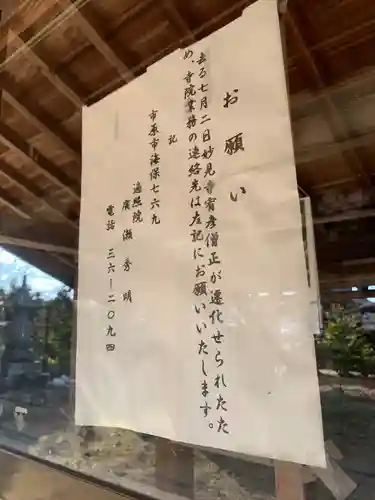 お願い
去る七月二日妙見寺賓彦僧正が遷化せられたた
め、寺院業務の連絡先は左記にお願いいたします。
記
市原市海保七六九
遍照院
廣瀬秀明
電話 三六ー二〇九四